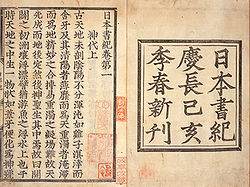 日本書紀
慶長己亥
季春新刊
日本書紀卷第一
神代上
古天地未剖陰陽不分渾沌如雞子溟涬而
含牙及其清陽者薄靡而爲天重濁者淹滯
而爲地精妙之合摶易重濁之凝竭難故天
先成而地後定然後神聖生其中焉故曰開
闢之初洲壤浮漂譬猶游魚之浮水上也于
時天地之中生一物狀如葦牙便化爲神